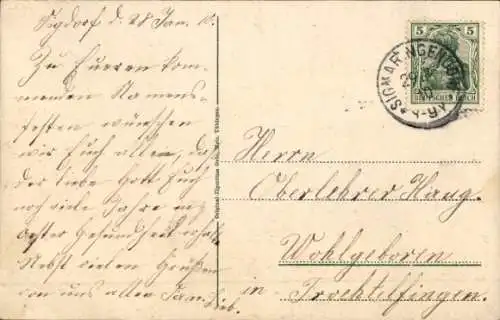 Sigdorf d. 28 Jan. 10.
Zu Eueren kom-
menden Namens-
festen wünschen
wir Euch allen, daß
der liebe Gott Euch
noch viele Jahre in
bester Gesundheit erhalte
Nebst vielen Grüßen
von uns allen Fam. Sieb.
5 5
DEUTSCHES REICH
SIGMARINGENDORF
Herrn
Oberlehrer Haug.
Wohlgeboren
in Trochtelfingen.